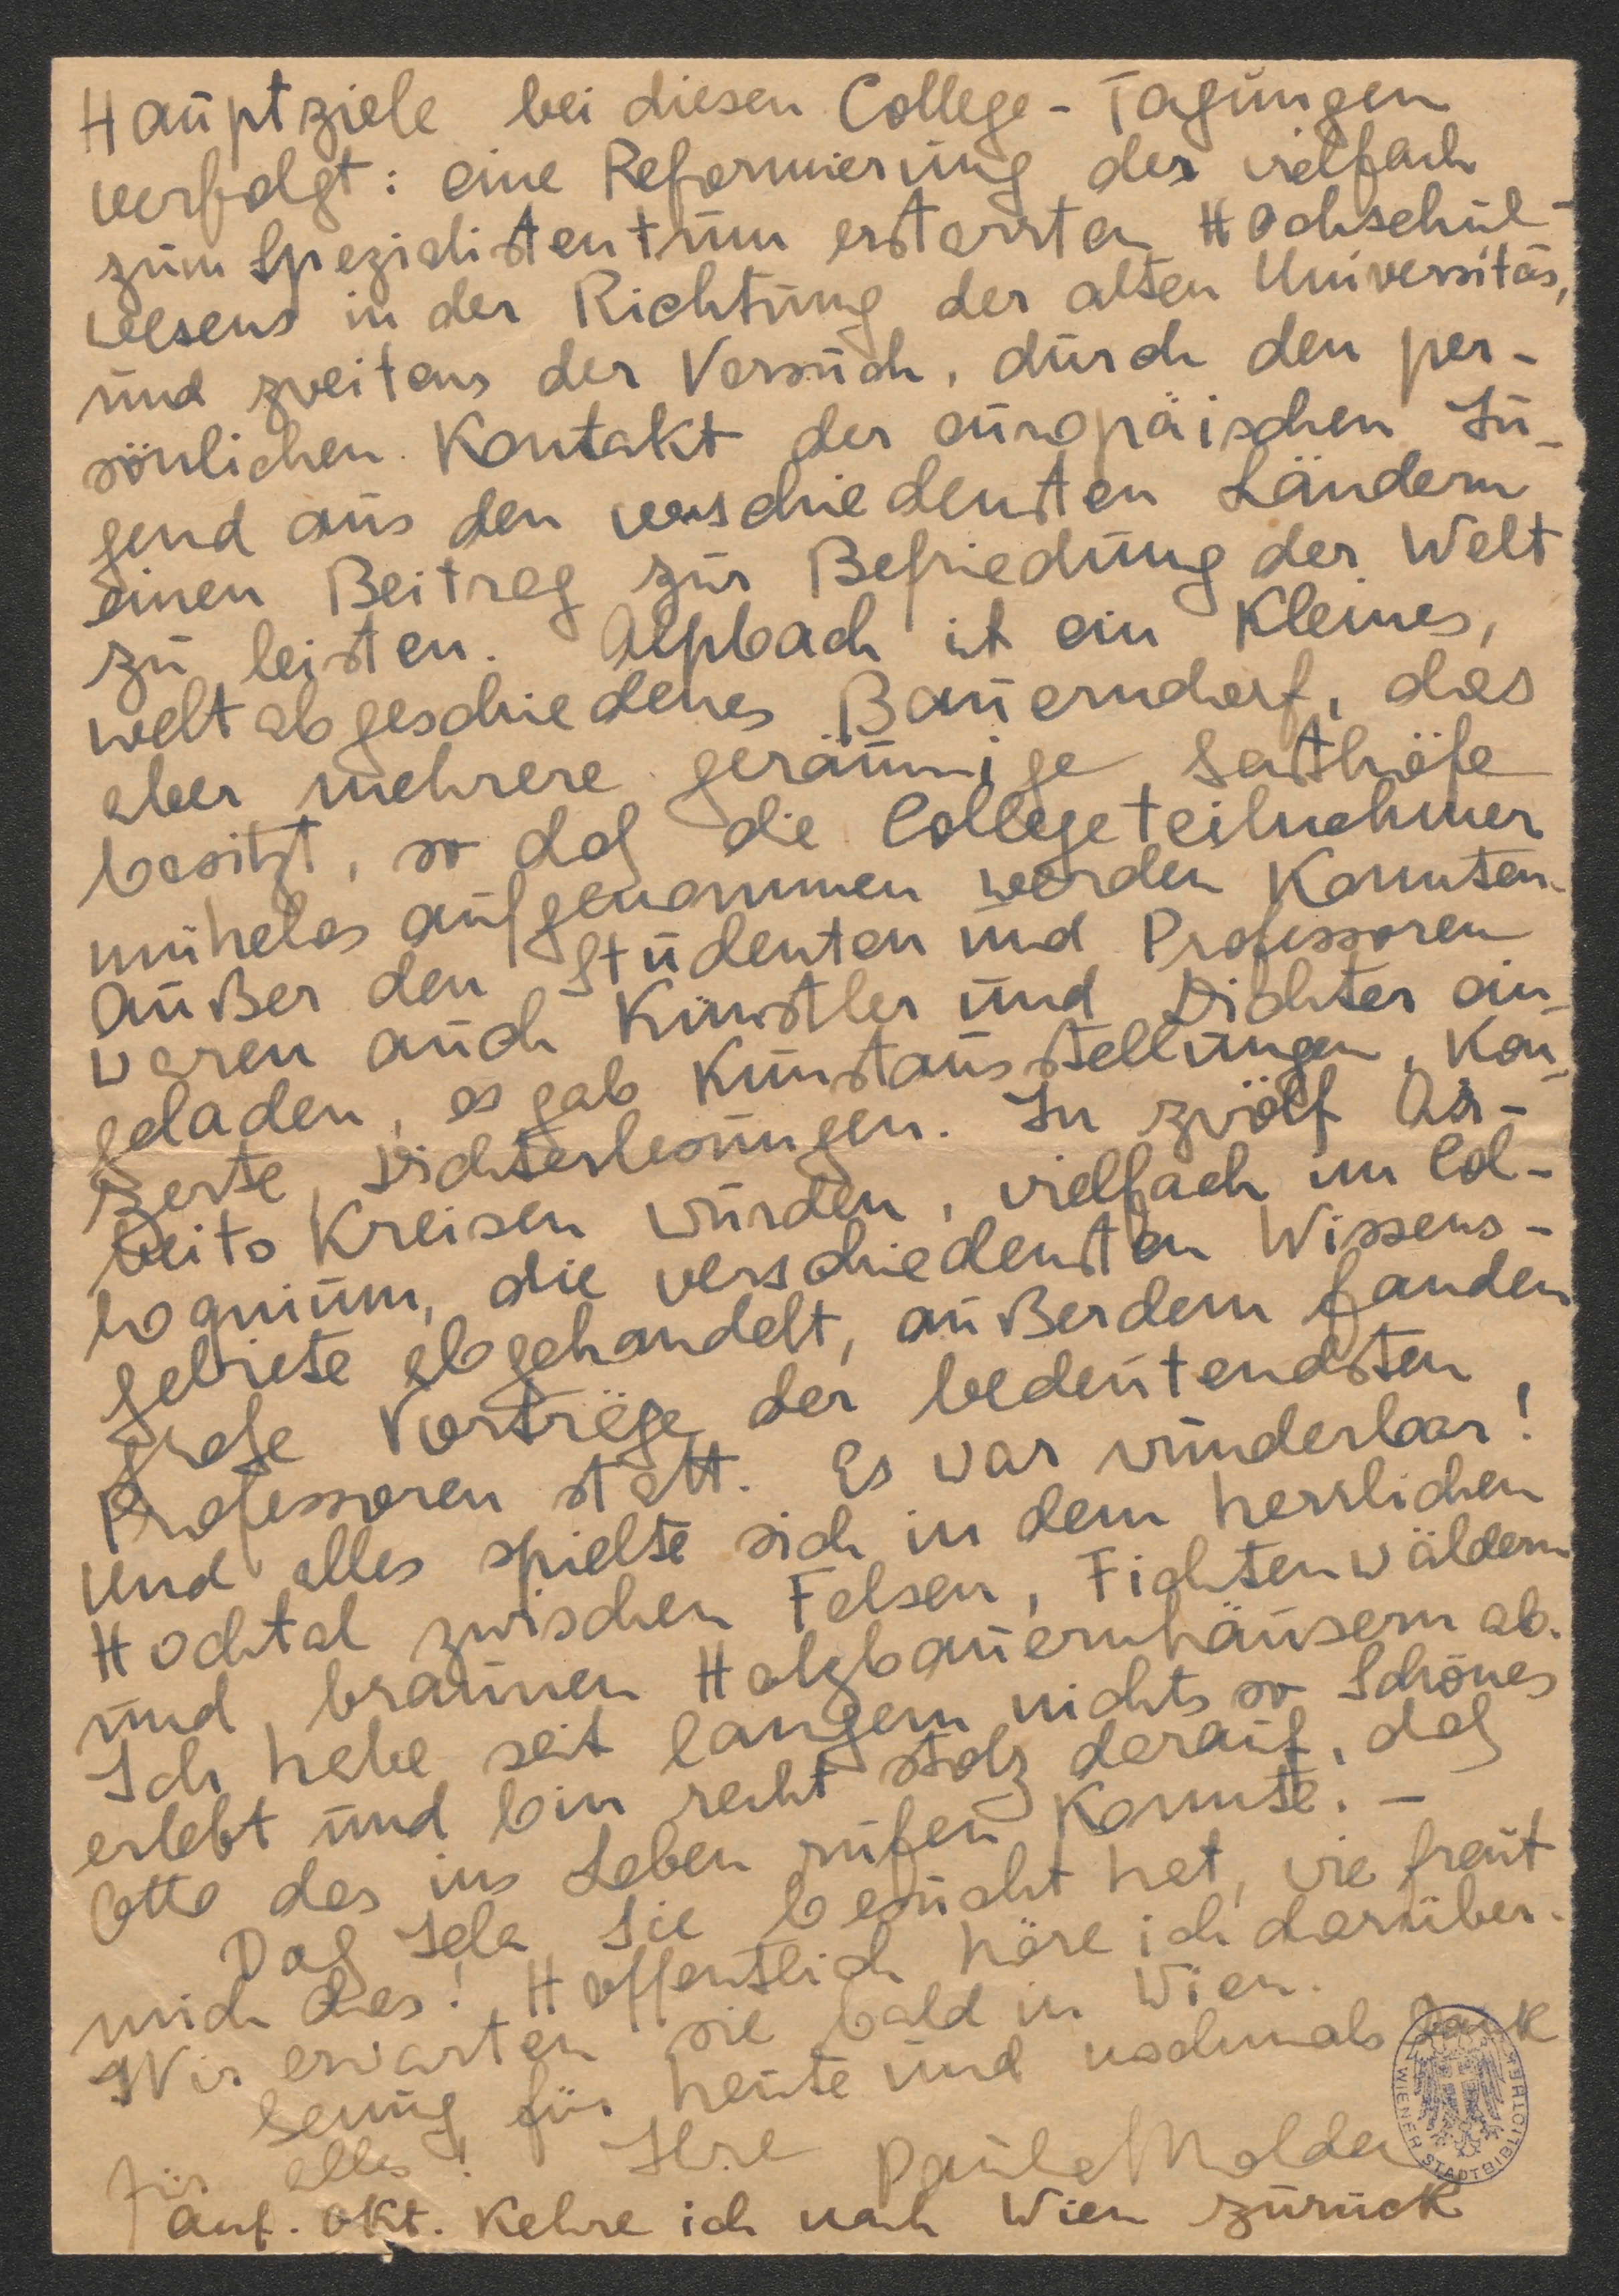 Hauptziele bei diesen College-Tagungen
verfolgt: eine Reformierung des vielfach
zum Spezialistentum erstarrten Hochschul-
wesens in der Richtung der alten Universitas,
und zweitens der Versuch, durch den per-
sönlichen Kontakt der europäischen Ju-
gend aus den verschiedensten Ländern
einen Beitrag zur Befriedung der Welt
zu leisten. Alpbach ist ein kleines,
weltabgeschiedenes Bauerndorf, das
aber mehrere geräumige Gasthöfe
besitzt, so daß die Collegeteilnehmer
mühelos aufgenommen werden konnten.
Außer den Studenten und Professoren
waren auch Künstler und Dichter ein-
geladen, es gab Kunstausstellungen, Kon-
zerte, Dichterlesungen. In zwölf Ar-
beits Kreisen wurden, vielfach im Col-
loquium, die verschiedensten Wissens-
gebiete abgehandelt, außerdem fanden
große Vorträge der bedeutendsten
Professoren statt. Es war wunderbar!
Und alles spielte sich in dem herrlichen
Hochtal zwischen Felsen, Fichtenwäldern
und braunen Holzbauernhäusern ab.
Ich habe seit langem nichts so Schönes
erlebt und bin recht stolz darauf, daß
Otto das ins Leben rufen konnte. -
Daß Sie besucht hat, wie freut
mich das! Hoffentlich höre ich darüber.
Wir erwarten sie bald in Wien.
Genug für heute und nochmals Dank
für alles! Ihre Paula Molden
Anf. Okt. kehre ich nach Wien zurück
WIENER STADTBIBLIOTHEK